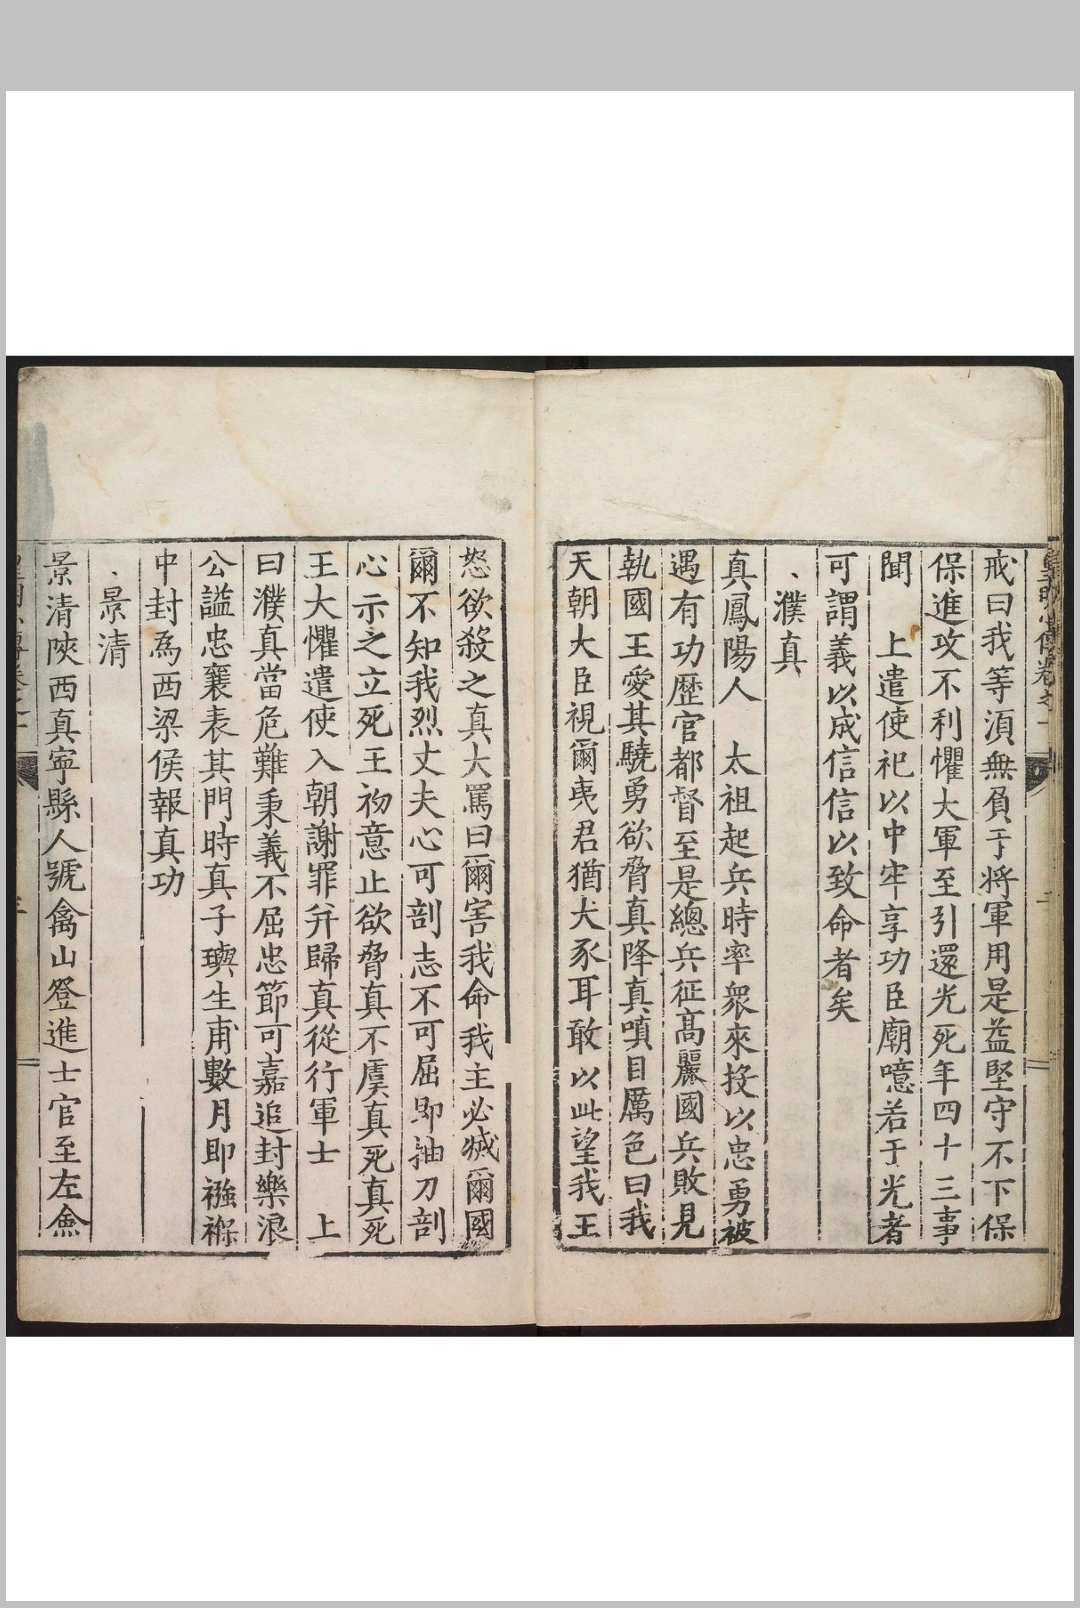 戒曰我等湏無負于將軍用是益堅守不下保
保進攻不利懼大軍至引還光死年四十三事
聞　上遣使祀以中牢享功臣廟噫若于光者
可謂義以成信信以致命者矣
濮真
真鳳陽人　太祖起兵時率衆來投以忠勇被
遇有功歷官都督至是總兵征髙麗國兵敗見
執國王愛其驍勇欲脅真降真嗔目厲色曰我
天朝大臣視爾夷君猶犬豕耳敢以此望我王
怒欲殺之真大罵曰爾害我命我主必㓕爾國
爾不知我烈丈夫心可剖志不可屈即抽刀剖
心示之立死王初意止欲脅真不虞真死真死
王大懼遣使入朝謝罪并歸真從行軍士　上
曰濮真當危難秉義不屈忠節可嘉追封樂浪
公謚忠襄表其門時真子璵生甫數月即襁褓
中封為西梁侯報真功
景清
景清陝西真寧縣人號禽山登進士官至左僉